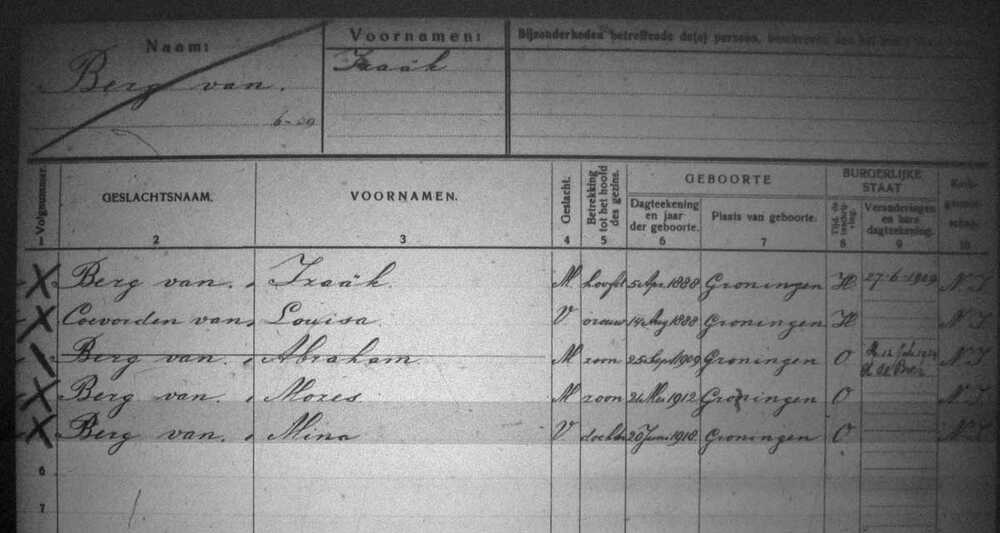 Naam:
Berg van.
6-29
Voornamen:
Izaäk
Bijzonderheden betreffende de(n) persoon, beschreven aan het
Volgnummer
GESLACHTSNAAM.
VOORNAMEN.
Geslacht.
Betrekking tot het hoofd des gezins.
GEBOORTE
Dagteekening en jaar der geboorte.
Plaats van geboorte.
BURGERLIJKE STAAT
Veranderingen en hare dagteekening.
1 2 3 4 5 6 7 8 9 10
Berg van. Izaäk. M hoofd 5 Apr 1888 Groningen H 27-6-1909 N.I
Coevorden van Louisa. V vrouw 14 Aug 1888 Groningen H N.I
Berg van. Abraham M zoon 25 Sept 1909 Groningen O de Boer N.I
Berg van. Mozes M zoon 1912 Groningen O N.I
Berg van. Mina V dochter 20 Juni 1918 Groningen O N.I
6
7